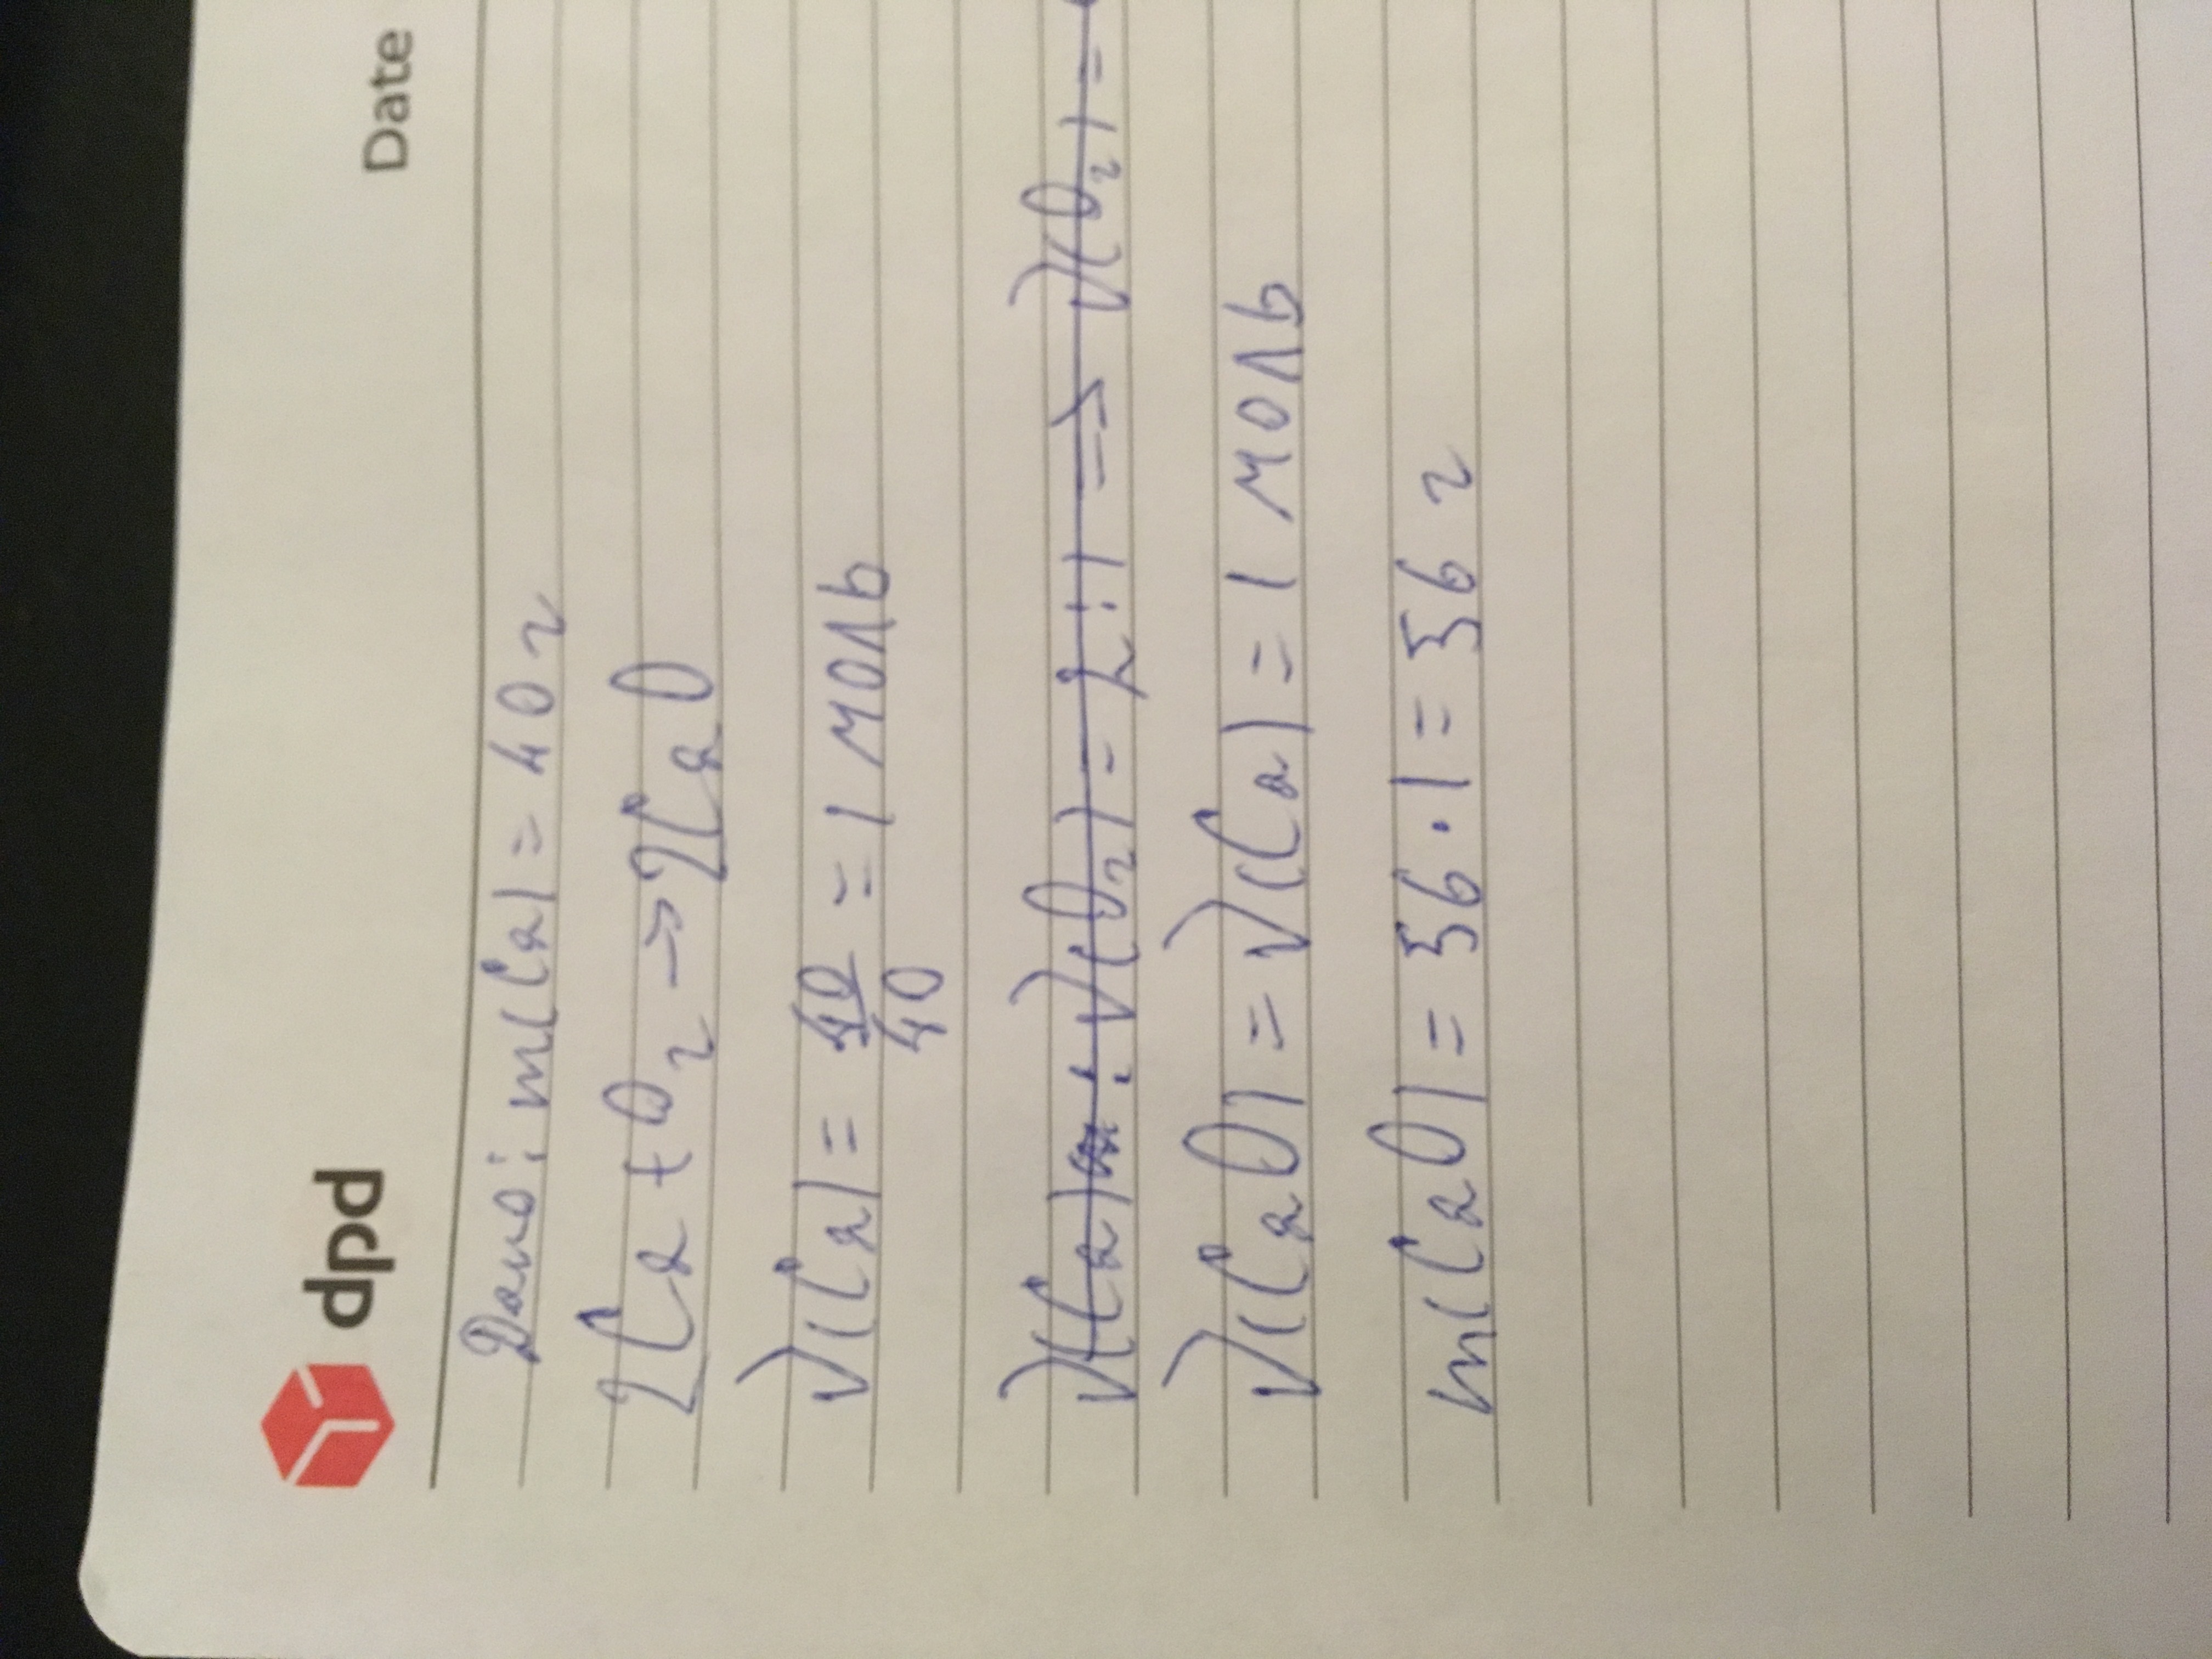 dpd Date
Дано: m(Ca) = 40 г
2Ca + O₂ → 2CaO
ν(Ca) = 40/40 = 1 моль
ν(Ca) : ν(O₂) = 2 : 1 => ν(O₂) =
ν(CaO) = ν(Ca) = 1 моль
m(CaO) = 56 · 1 = 56 г